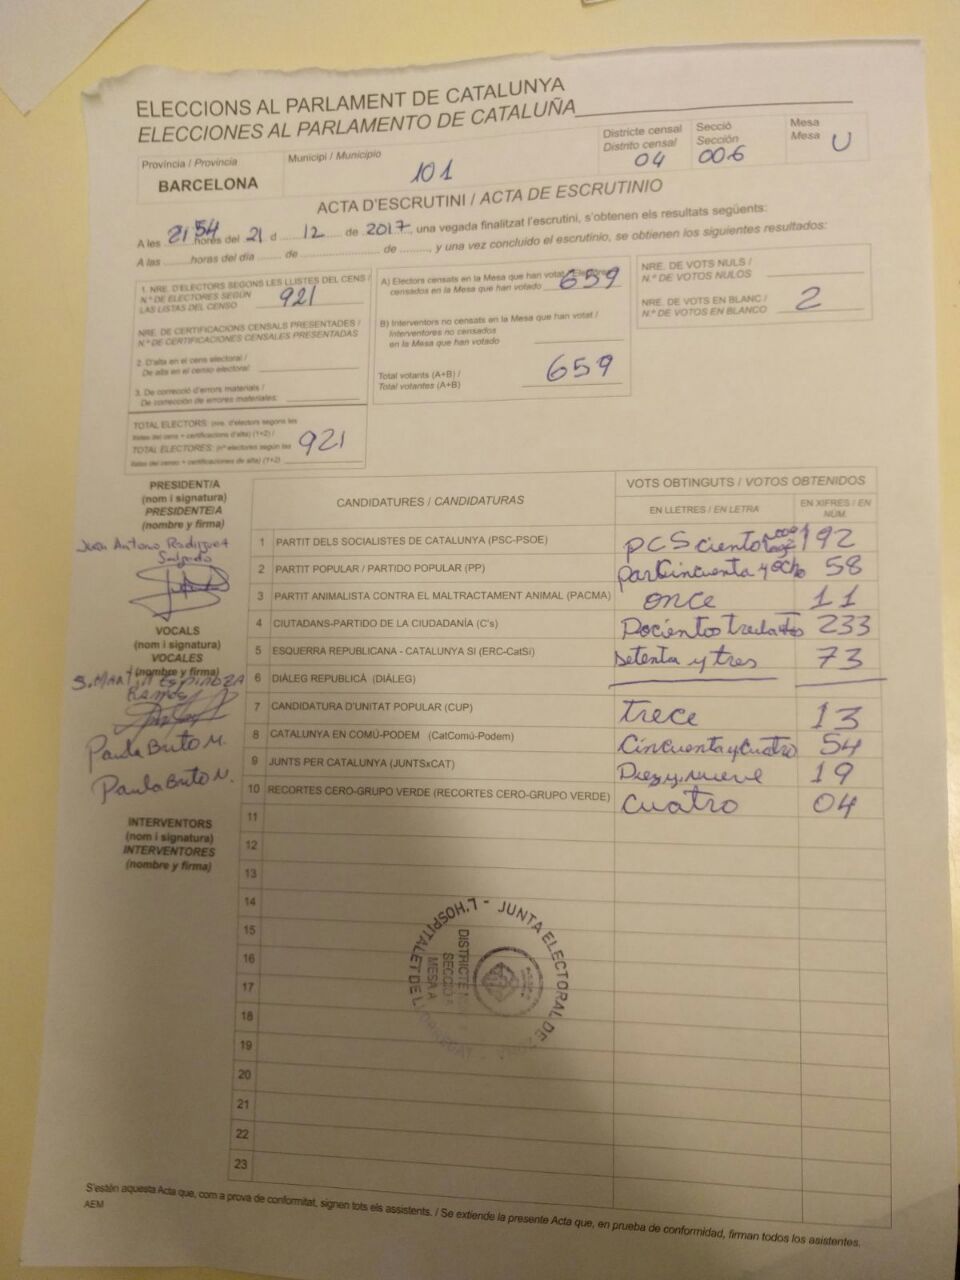 ELECCIONS AL PARLAMENT DE CATALUNYA
ELECCIONES AL PARLAMENTO DE CATALUÑA
Província / Provincia
BARCELONA
Municipi / Municipio
101
Districte censal
Distrito censal
04
Secció
Sección
006
Mesa
Mesa
U
ACTA D'ESCRUTINI / ACTA DE ESCRUTINIO
A les 21 54 hores del 21 d ... 12 ... de 2017, una vegada finalitzat l'escrutini, s'obtenen els resultats següents:
A las ........horas del día ...... de .................. de ........, y una vez concluido el escrutinio, se obtienen los siguientes resultados:
1. NRE. D'ELECTORS SEGONS LES LLISTES DEL CENS /
N.º DE ELECTORES SEGÚN
LAS LISTAS DEL CENSO
921
NRE. DE CERTIFICACIONS CENSALS PRESENTADES /
N.º DE CERTIFICACIONES CENSALES PRESENTADAS
2. D'alta en el cens electoral /
De alta en el censo electoral
3. De correcció d'errors materials /
De corrección de errores materiales:
TOTAL ELECTORS: (nre. d'electors segons les
llistes del cens + certificacions d'alta) (1+2) /
TOTAL ELECTORES: (nº electores según las
listas del censo + certificaciones de alta) (1+2)
921
A) Electors censats en la Mesa que han votat /Electores
censados en la Mesa que han votado
659
B) Interventors no censats en la Mesa que han votat /
Interventores no censados
en la Mesa que han votado
Total votants (A+B) /
Total votantes (A+B)
659
NRE. DE VOTS NULS /
N.º DE VOTOS NULOS
NRE. DE VOTS EN BLANC /
N.º DE VOTOS EN BLANCO
2
PRESIDENT/A
(nom i signatura)
PRESIDENTE/A
(nombre y firma)
Juan Antonio Rodriguez
Salgado
VOCALS
(nom i signatura)
VOCALES
(nombre y firma)
ESPINOZA
Ramos
Paula Brito M.
Paula Brito M.
INTERVENTORS
(nom i signatura)
INTERVENTORES
(nombre y firma)
CANDIDATURES / CANDIDATURAS
VOTS OBTINGUTS / VOTOS OBTENIDOS
EN LLETRES / EN LETRA
EN XIFRES / EN NÚM.
1 PARTIT DELS SOCIALISTES DE CATALUNYA (PSC-PSOE) PCS ciento 192
2 PARTIT POPULAR / PARTIDO POPULAR (PP) Cincuenta y ocho 58
3 PARTIT ANIMALISTA CONTRA EL MALTRACTAMENT ANIMAL (PACMA) once 11
4 CIUTADANS-PARTIDO DE LA CIUDADANÍA (C's) Docientos 233
5 ESQUERRA REPUBLICANA - CATALUNYA SI (ERC-CatSí) Setenta y tres 73
6 DIÀLEG REPUBLICÀ (DIÀLEG)
7 CANDIDATURA D'UNITAT POPULAR (CUP) trece 13
8 CATALUNYA EN COMÚ-PODEM (CatComú-Podem) Cincuenta y cuatro 54
9 JUNTS PER CATALUNYA (JUNTSxCAT) Diez y nueve 19
10 RECORTES CERO-GRUPO VERDE (RECORTES CERO-GRUPO VERDE) cuatro 04
11
12
13
14
15
16
17
18
19
20
21
22
23
JUNTA ELECTORAL DE
L'HOSPITALET DE
DISTRICTE
SECCIÓ
MESA A
S'estén aquesta Acta que, com a prova de conformitat, signen tots els assistents. / Se extiende la presente Acta que, en prueba de conformidad, firman todos los asistentes.
AEM